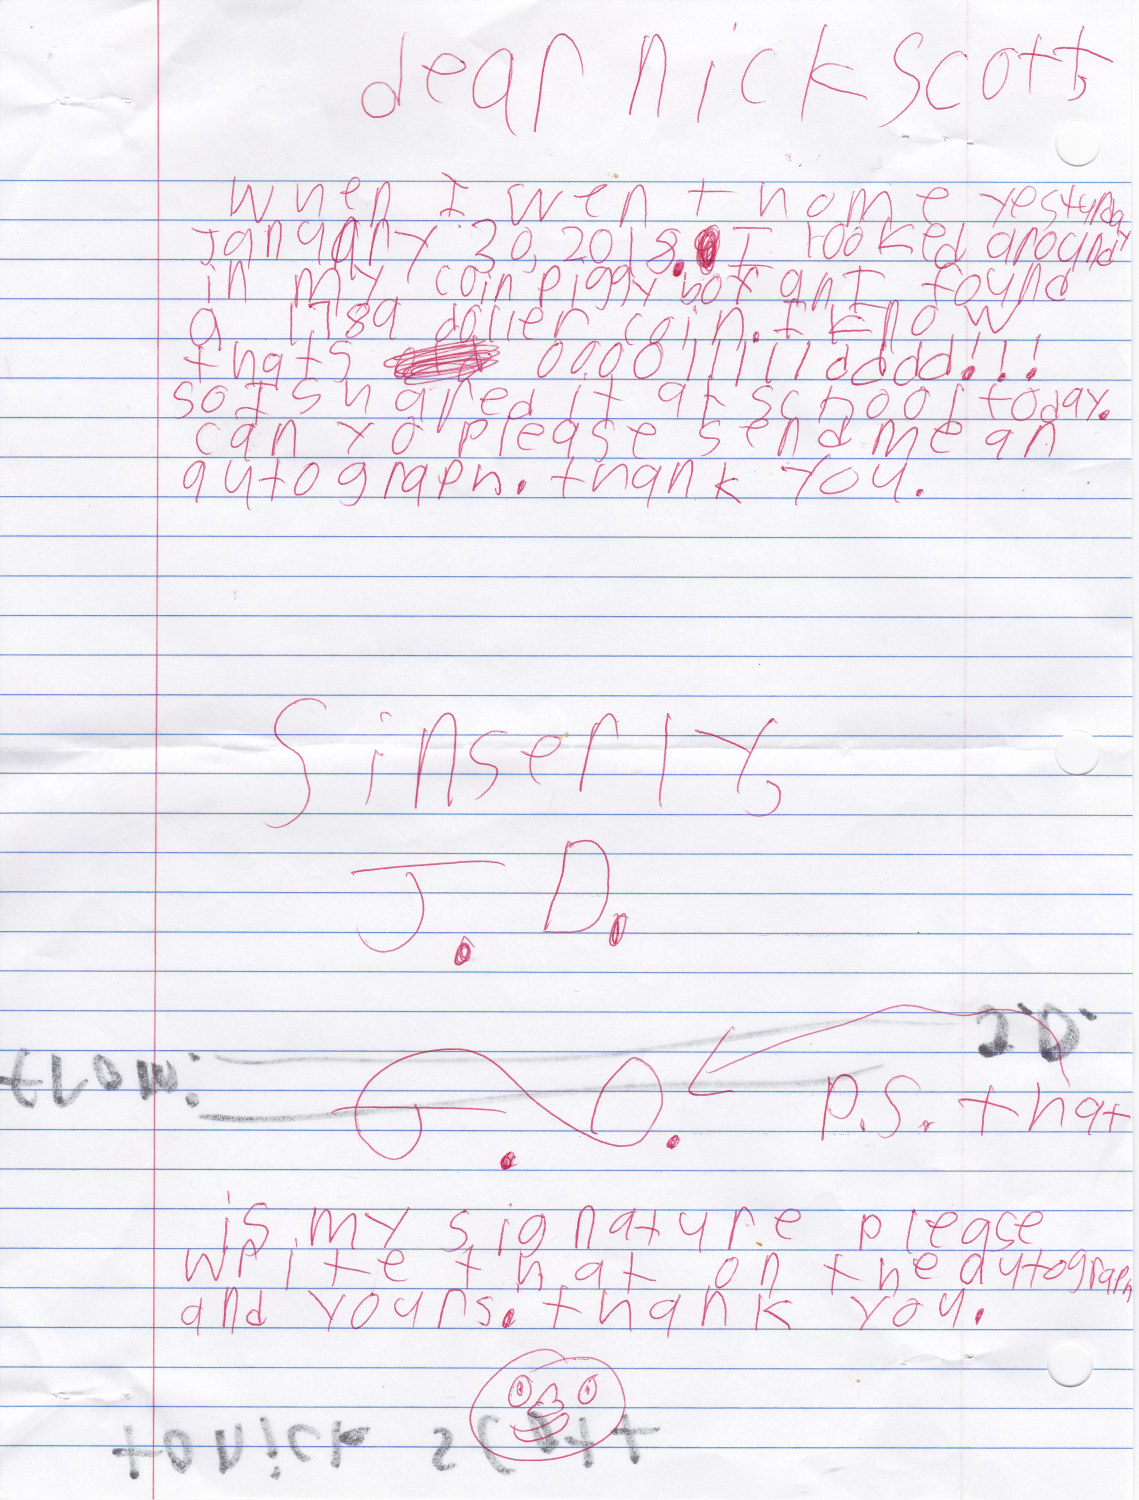 dear nick scott,
when I went home yesturday
January 30, 2018. I looked around
in my coin piggy box an I found
a 1789 doller coin. I know
thats oooollllllldddd!!!
so I shared it at school today.
can yo please send me an
autograph. thank you.
Sinserly,
J. D.
J.D.
from:
J. D.
P.S. that
is my signature please
write that on the autograph
and yours. thank you.
to nick scott